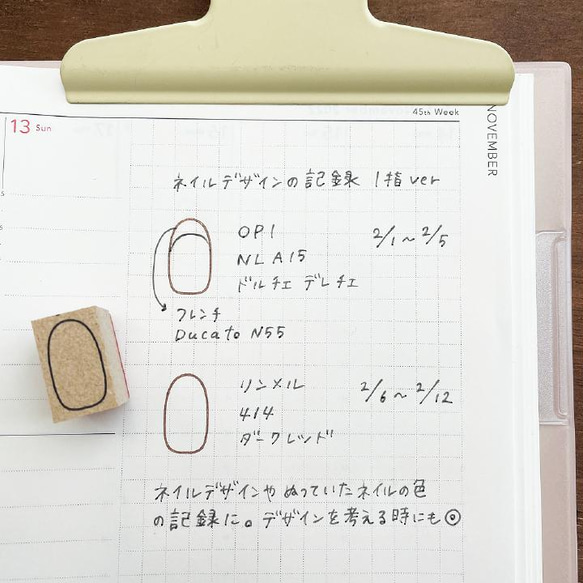 45th Week
NOVEMBER
13 Sun
ネイルデザインの記録 1指ver
OPI
NL A15
ドルチェ デレチェ
2/1〜2/5
フレンチ
Ducato N55
リンメル
414
ダークレッド
2/6〜2/12
ネイルデザインや ぬっていたネイルの色
の記録に。デザインを考える時にも◎